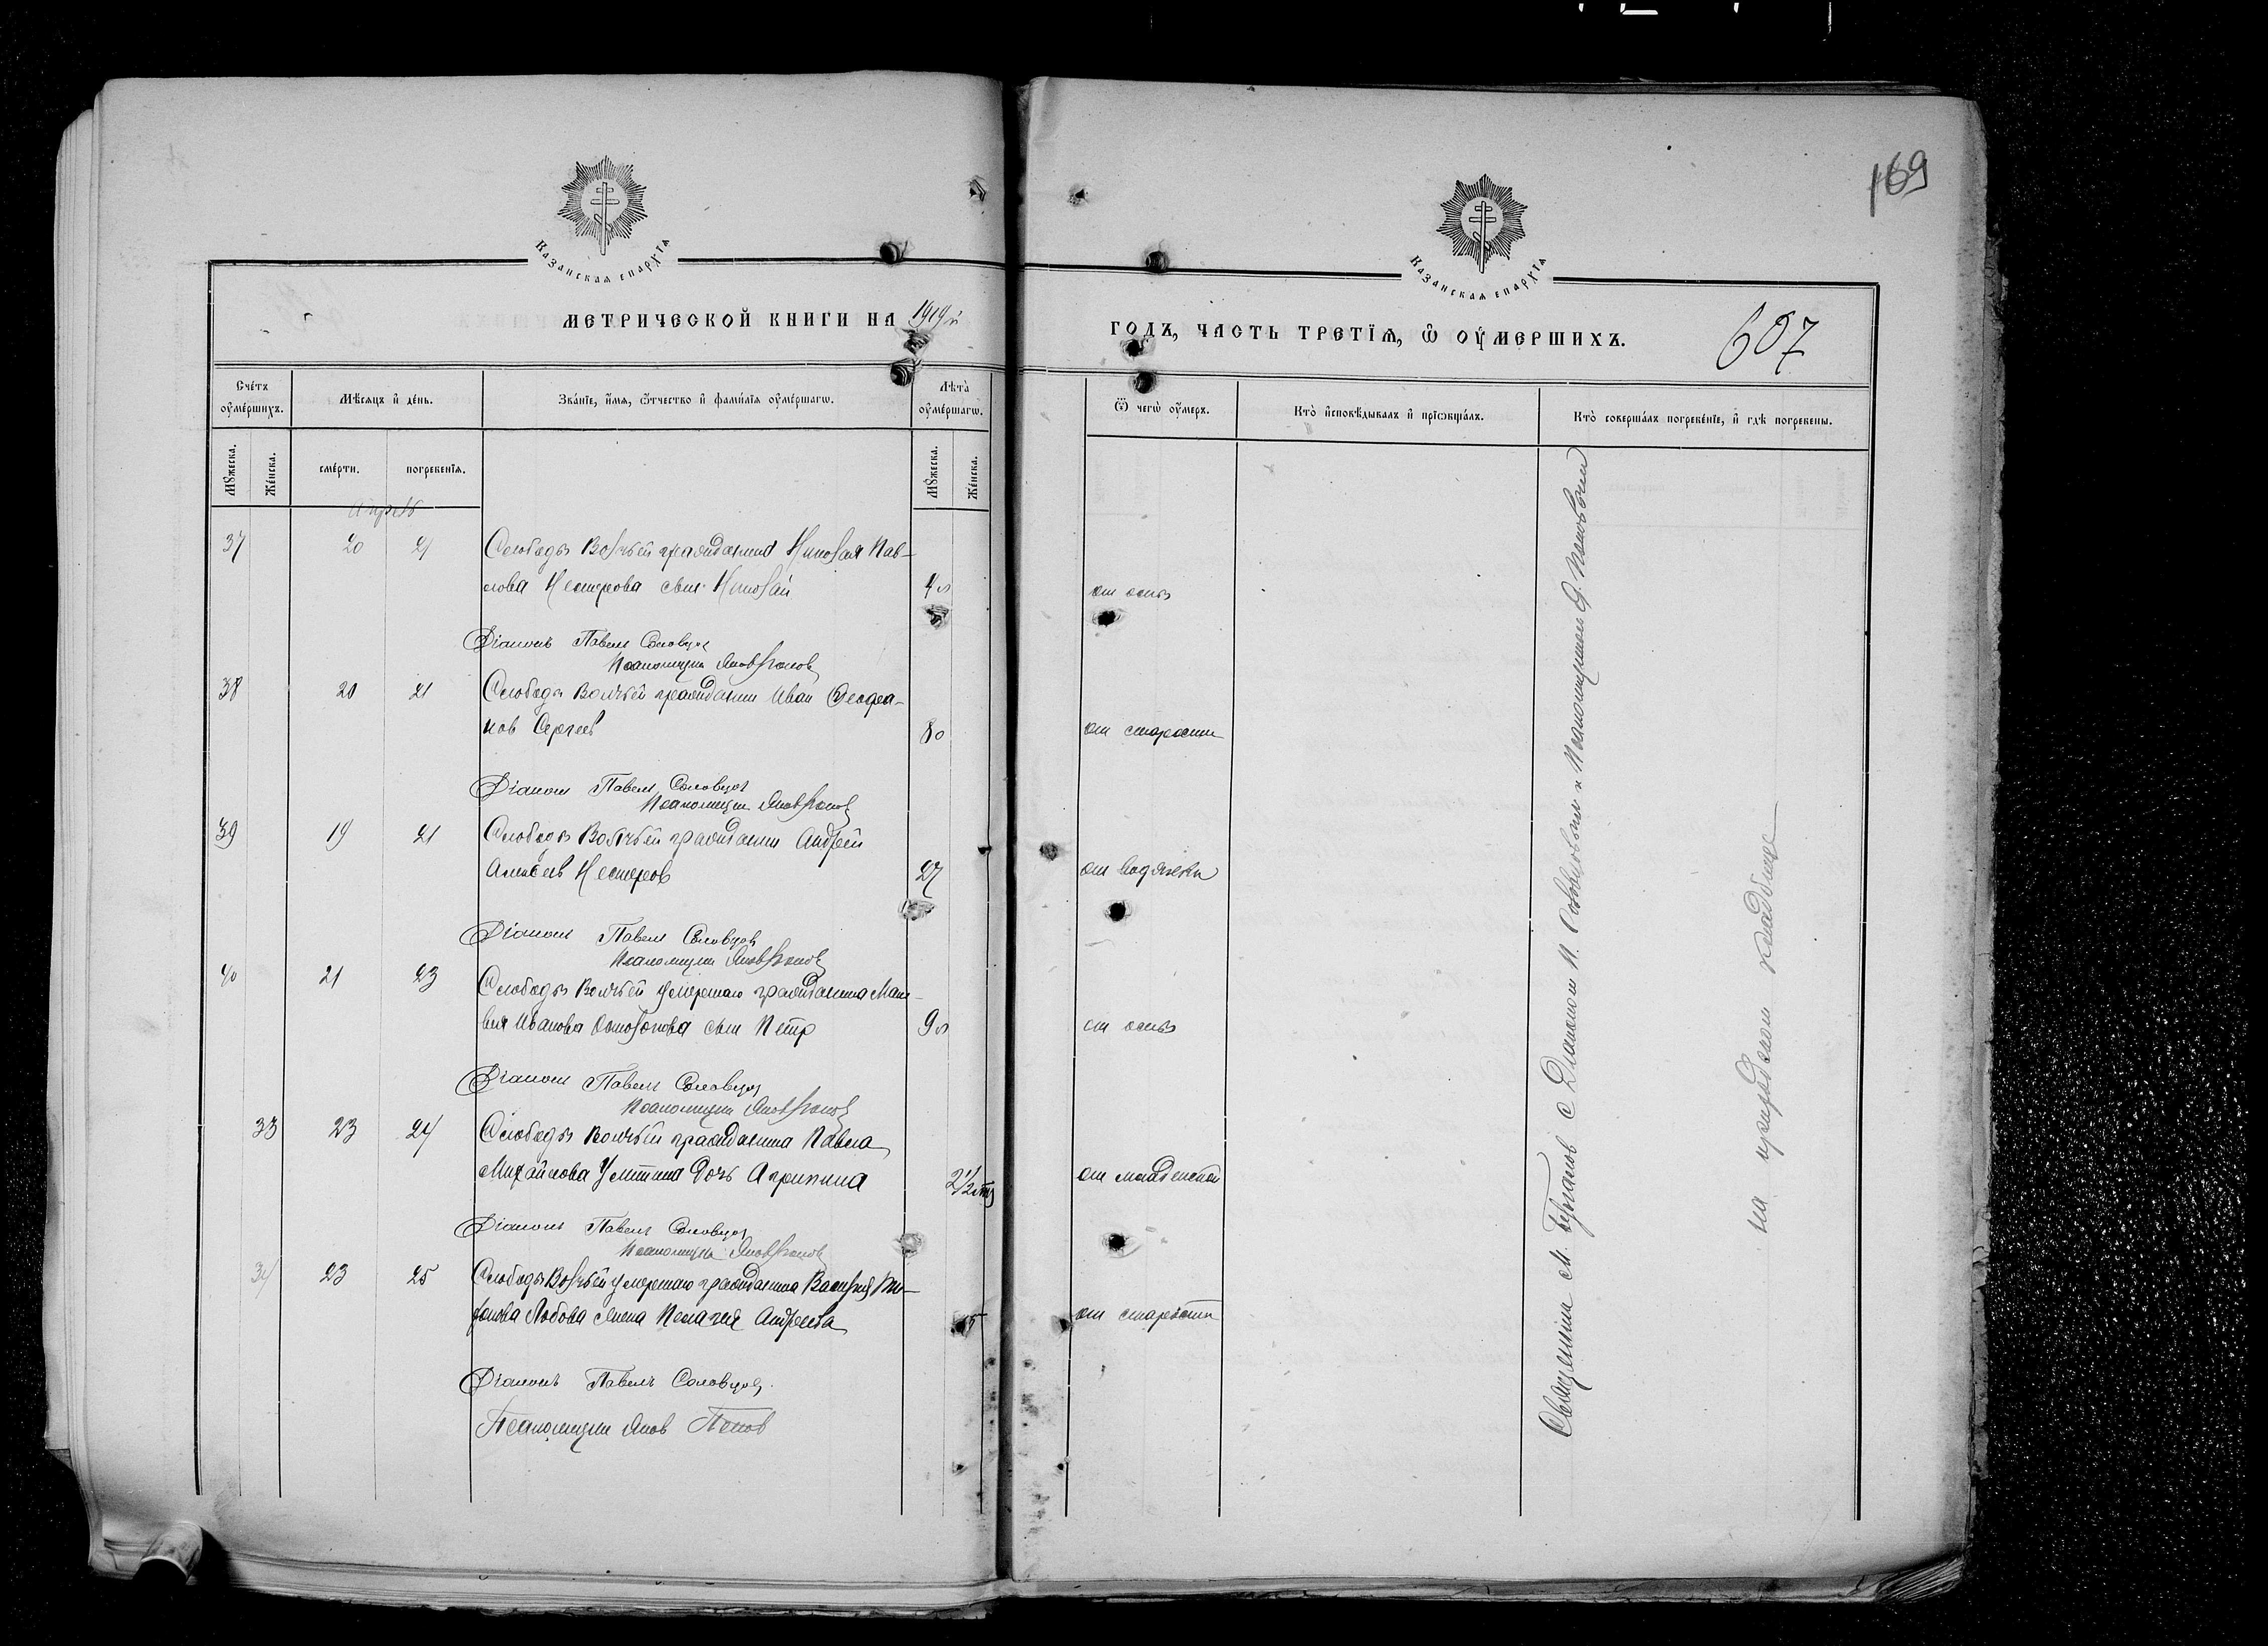 169
Казанская епархїѧ
Казанская епархїѧ
МЕТРИЧЕСКОЙ КНИГИ НА 1919й
ГОДЪ, ЧАСТЬ ТРЕТЇѦ, Ѿ ОУМЕРШИХЪ.
607
Счетъ оумершихъ.
Мѣсяцъ и день.
Званїе, имя, ѿтчество и фамилїя оумершагѡ.
Лѣта оумершагѡ.
Ѿ чегѡ оумеръ.
Кто исповѣдывалъ и прїѡбщалъ.
Кто совершалъ погребенїе, и гдѣ погребены.
Мꙋжеска.
Женска.
смерти.
погребенїя.
Мꙋжеска.
Женска.
37 20 21 Слободы Волчьей гражданина Николая Пав-
лова Нестерова сын Николай 4 л от оспы
Діаконъ Павелъ Соловцов
Псаломщик Яков Попов
38 20 21 Слободы Волчьей гражданин Иван Феофа-
нов Сергеев 80 от старости
Діакон Павелъ Соловцов
Псаломщик Яков Попов
39 19 21 Слободы Волчьей гражданин Андрей
Алексеев Нестеров 27 от водянки
Діакон Павелъ Соловцов
Псаломщик Яков Попов
40 21 23 Слободы Волчьей умершаго гражданина Мат-
вея Иванова сын Петр 9 л от оспы
Діакон Павелъ Соловцов
Псаломщик Яков Попов
33 23 24 Слободы Волчьей гражданина Павла
Михайлова Устина дочь Агрипина 2 1/2 от младенской
Діаконъ Павелъ Соловцов
Псаломщик Яков Попов
34 23 25 Слободы Волчьей умершаго гражданина Василия
Лобова жена Пелагея Андреева от старости
Діаконъ Павелъ Соловцов.
Псаломщик Яков Попов
Священник М. с Диаконом П. Соловцовым и Псаломщиком Я. Поповым
на приходском кладбище